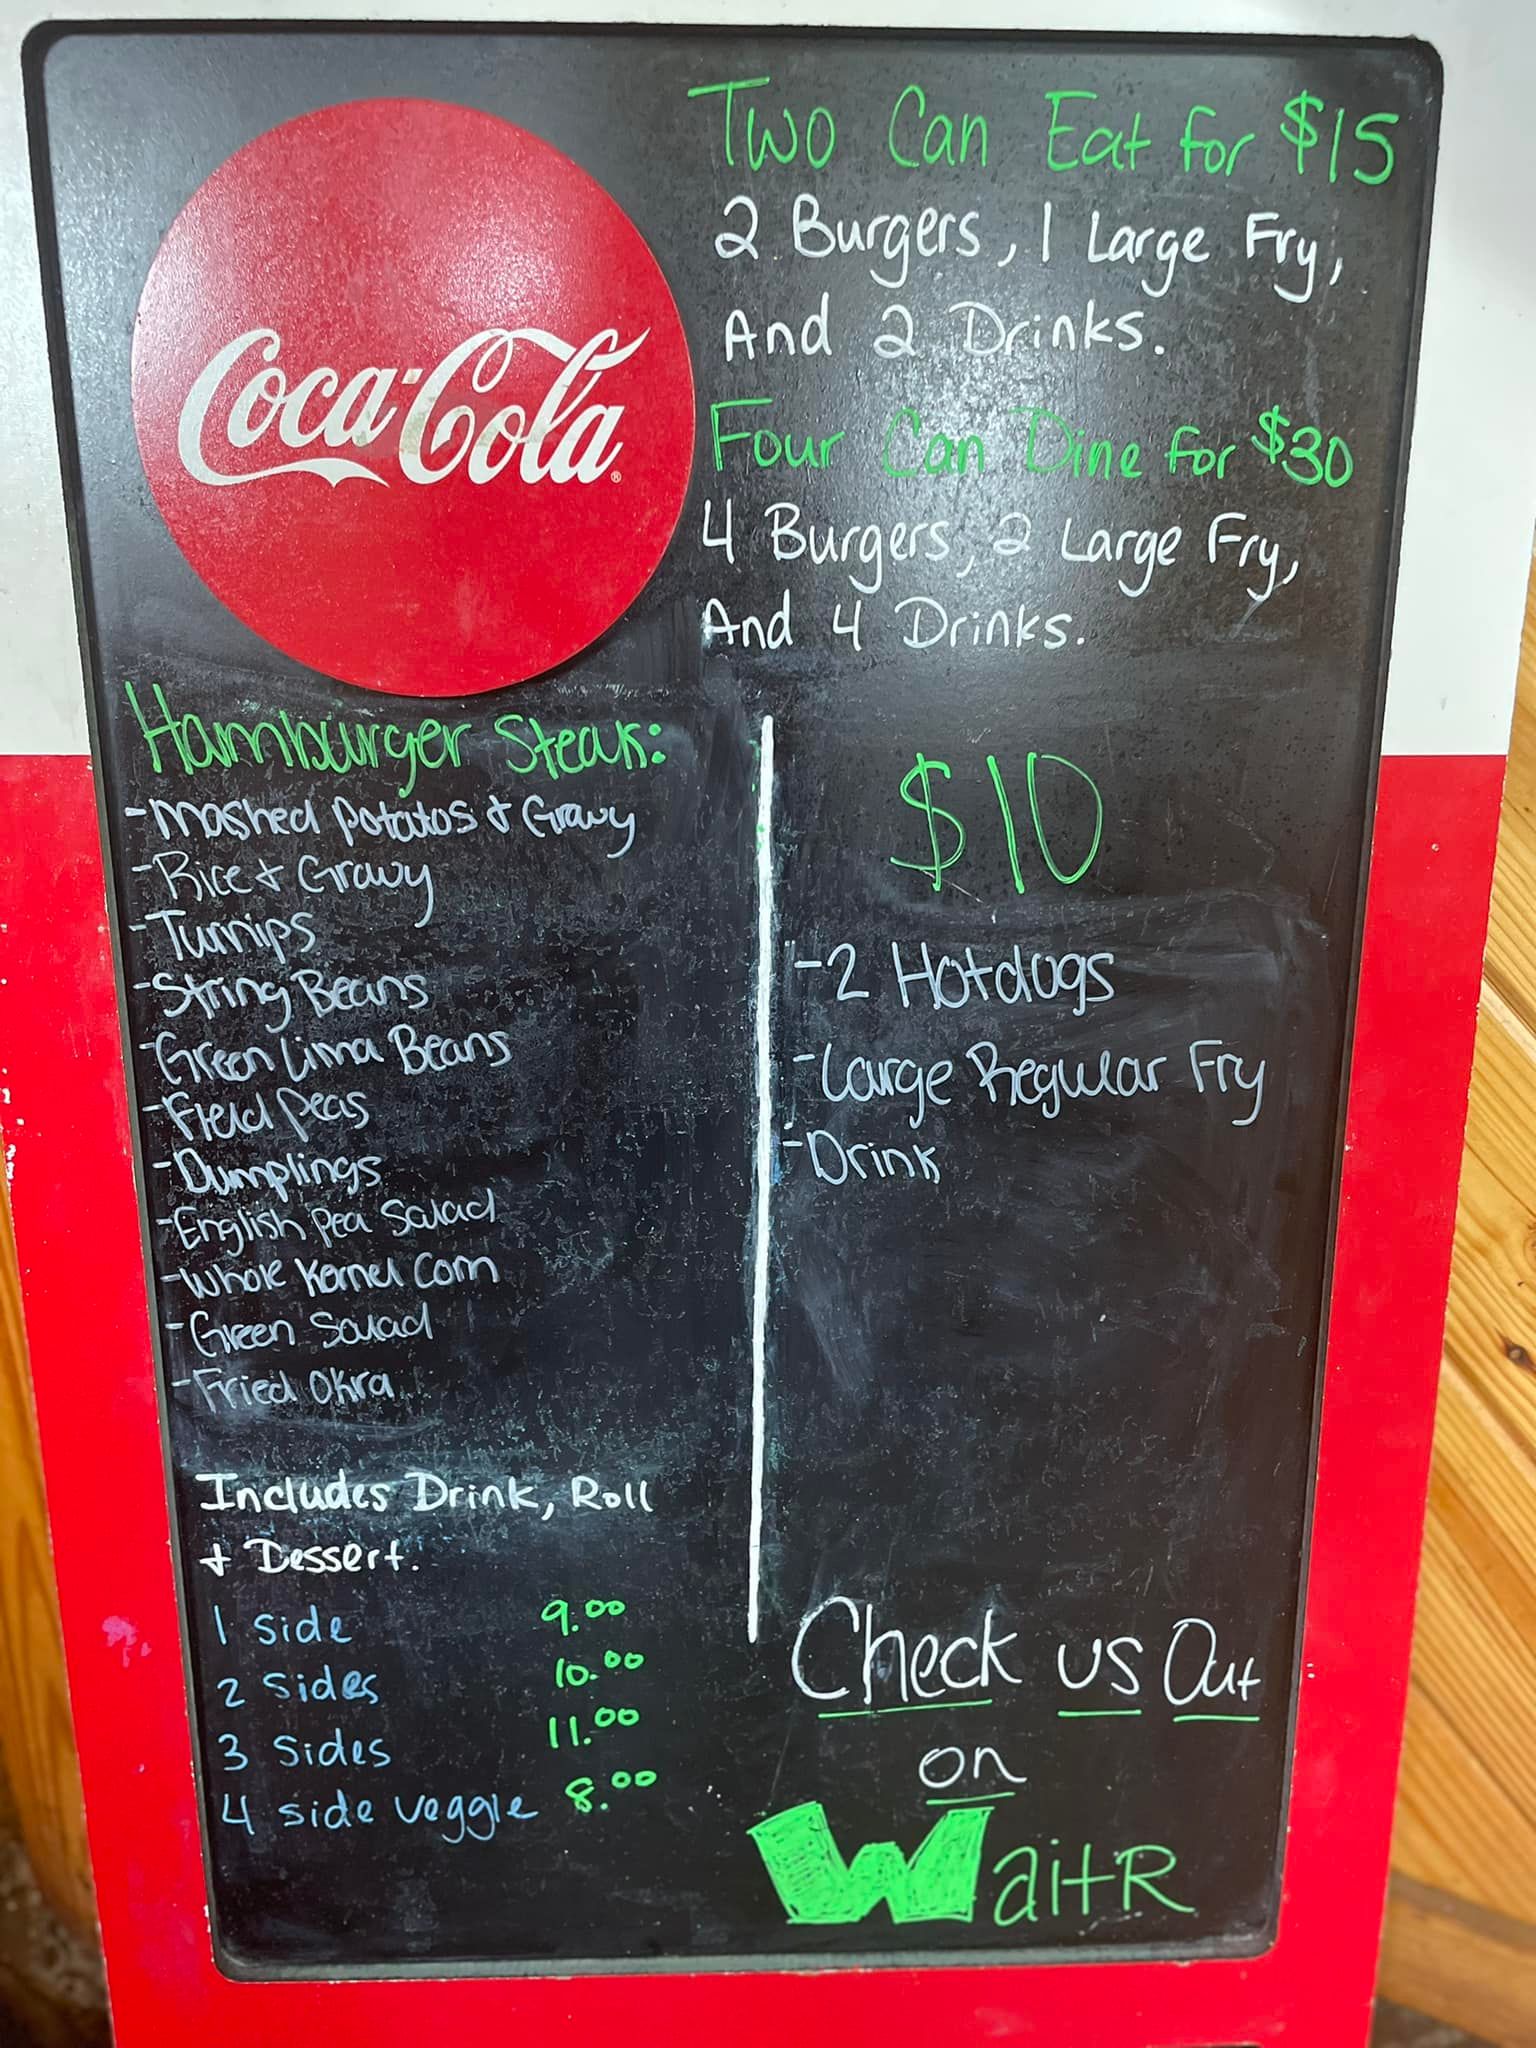 Coca-Cola®
Two Can Eat for $15
2 Burgers, 1 Large Fry,
And 2 Drinks.
Four Can Dine for $30
4 Burgers, 2 Large Fry,
And 4 Drinks.
Hamburger Steak:
-Mashed Potatos & Gravy
-Rice & Gravy
-Turnips
-String Beans
-Green Lima Beans
-Field Peas
-Dumplings
-English Pea Salad
-Whole Kernel Corn
-Green Salad
-Fried Okra
Includes Drink, Roll
& Dessert.
1 side 9.00
2 Sides 10.00
3 Sides 11.00
4 side veggie 8.00
$10
-2 Hotdogs
-Large Regular Fry
-Drink
Check us Out
on
WaitR